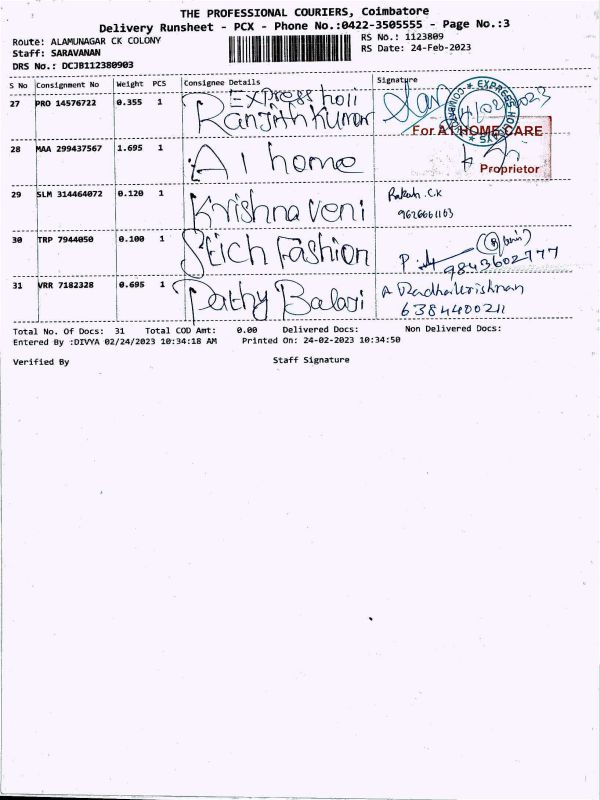 THE PROFESSIONAL COURIERS, Coimbatore
Delivery Runsheet - PCX - Phone No.:0422-3505555 - Page No.:3
Route: ALAMUNAGAR CK COLONY
RS No.: 1123809
Staff: SARAVANAN
RS Date: 24-Feb-2023
DRS No.: DCJB112380903
S No Consignment No Weight PCS Consignee Details Signature
27 PRO 14576722 0.355 1 EXPress holi
Ranjith kumar
For AT HOME CARE
Proprietor
28 MAA 299437567 1.695 1 At home
29 SLM 314464072 0.120 1 Krishna veni
Rakesh .C.K
9626661163
30 TRP 7944050 0.100 1 Stich Fashion
9843602777
31 VRR 7182328 0.695 1 Pathy Balaji
A Radhakrishnan
6384400211
Total No. Of Docs: 31 Total COD Amt: 0.00 Delivered Docs: Non Delivered Docs:
Entered By :DIVYA 02/24/2023 10:34:18 AM Printed On: 24-02-2023 10:34:50
Verified By Staff Signature